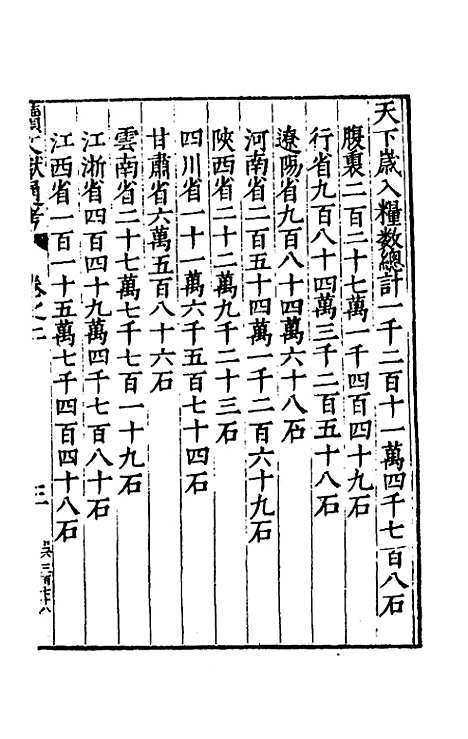 天下歲入糧數總計一千二百十一萬四千七百八石
腹裏二百二十七萬一千四百四十九石
行省九百八十四萬三千二百五十八石
遼陽省九百八十四萬六十八石
河南省二百五十四萬一千二百六十九石
陝西省二十二萬九千二十三石
四川省一十一萬六千五百七十四石
甘肅省六萬五百八十六石
雲南省二十七萬七千七百一十九石
江浙省四百四十九萬四千七百八十石
江西省一百一十五萬七千四百四十八石
續文獻通考 卷之二 三